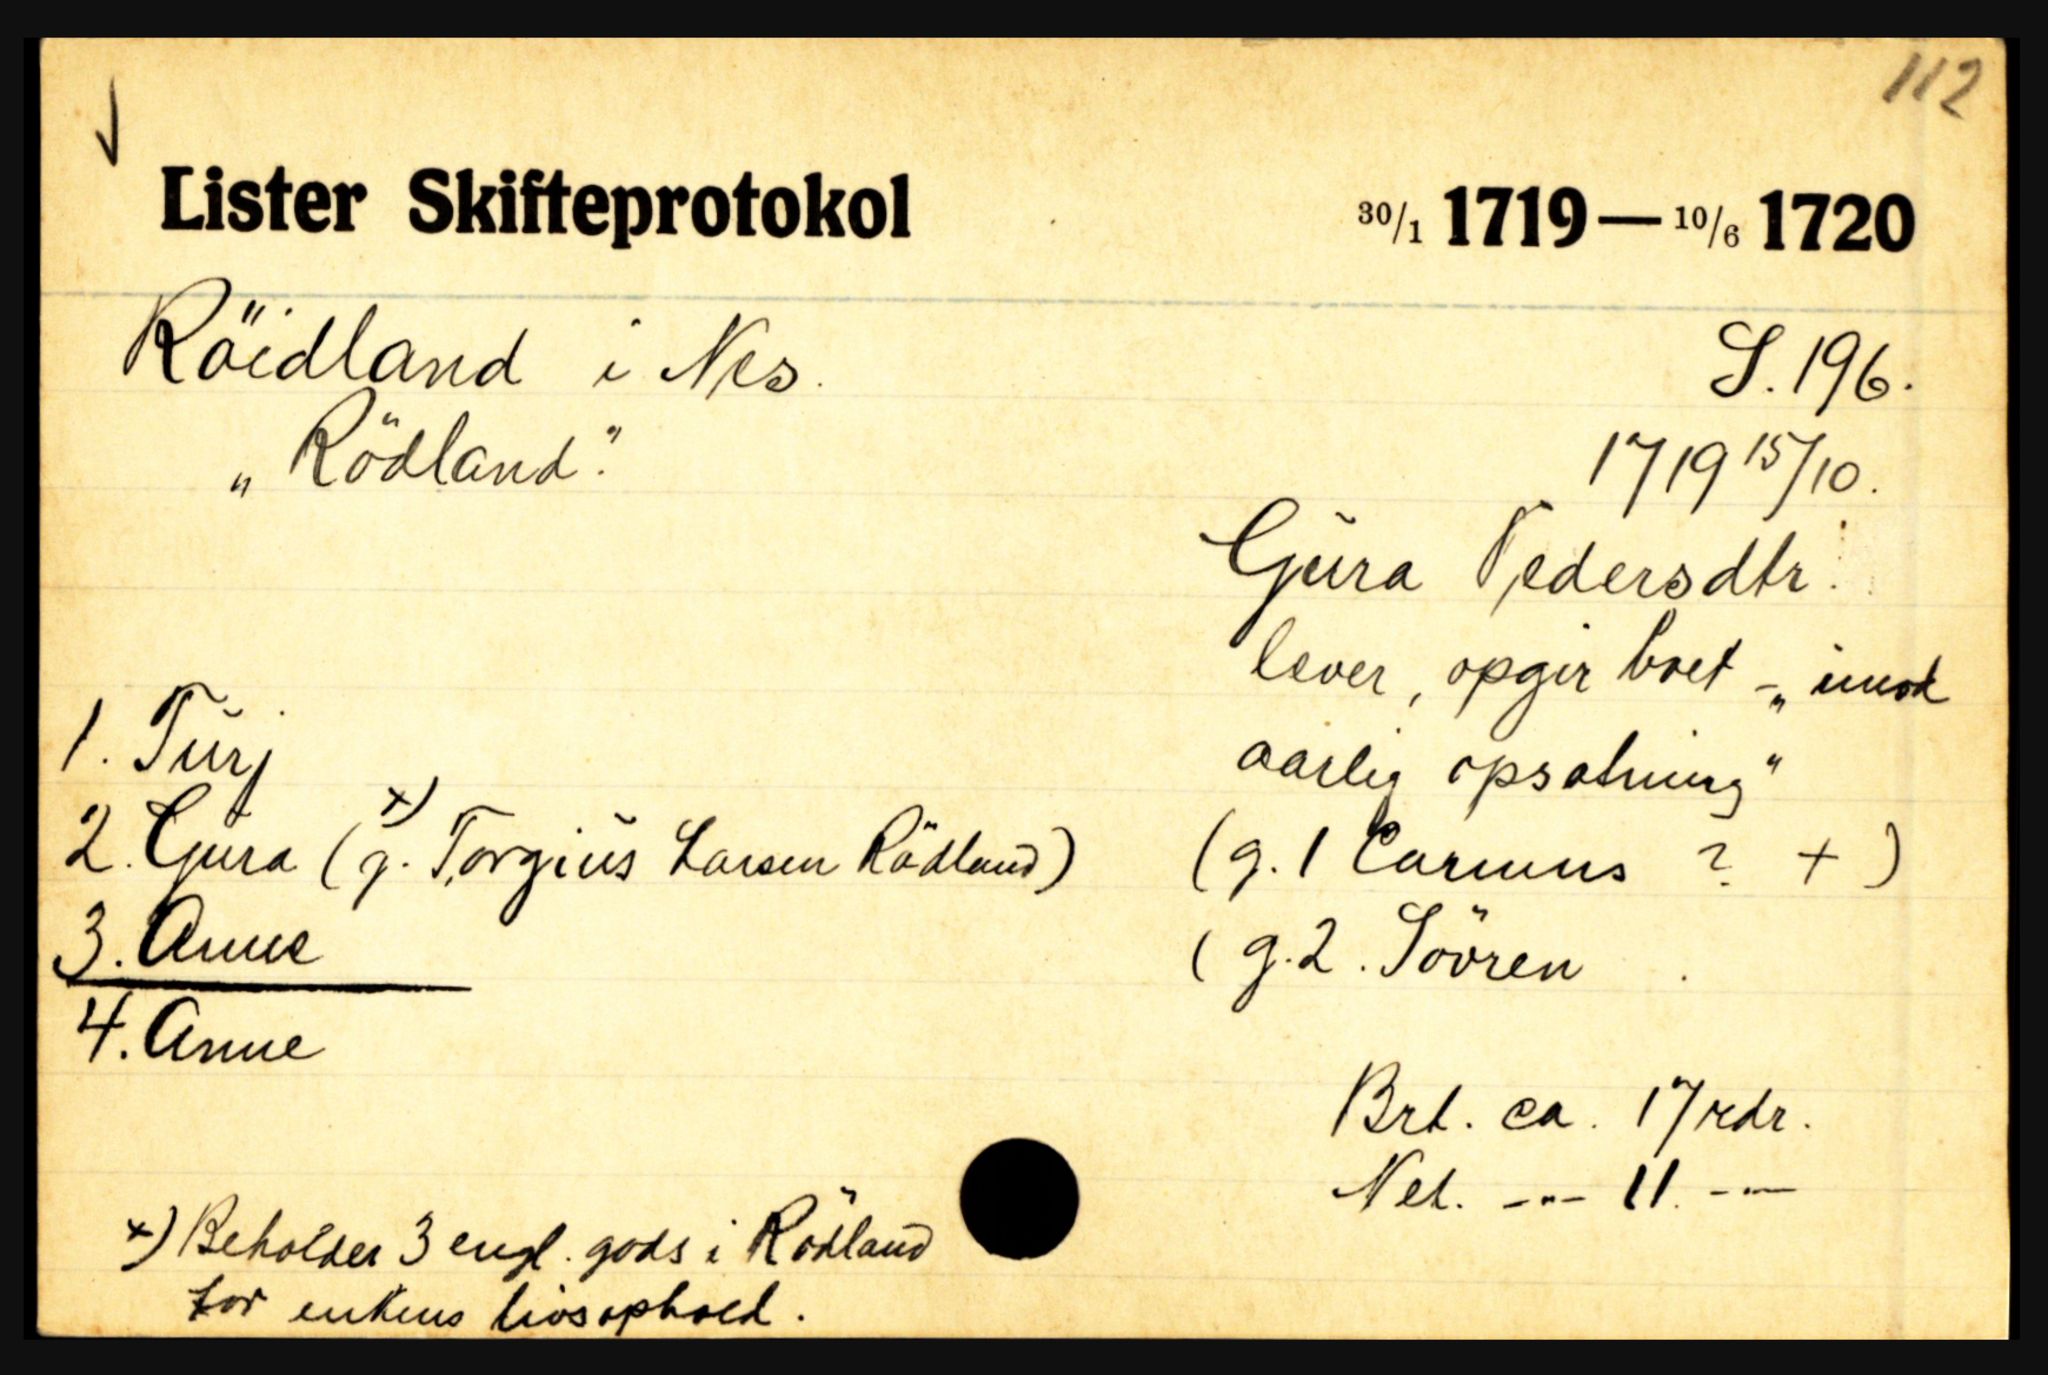 112
Lister Skifteprotokol 30/1 1719 — 10/6 1720
Röidland i Nes. S. 196.
„Rödland". 1719 15/10.
Gŭra Pedersdtr.
lever, opgir boet - „imod
aarlig opsætning"
(g. 1 Carmus ? +)
(g. 2. Sövren
1. Tŭrj
2. Gŭra (g. +) Torgiŭs Larsen Rödland)
3. Anne
4. Anne
Brt. ca. 17 rdr.
Net. -"- 11. -"-
+) Beholder 3 engl. gods i Rödland
for enkens livsophold.